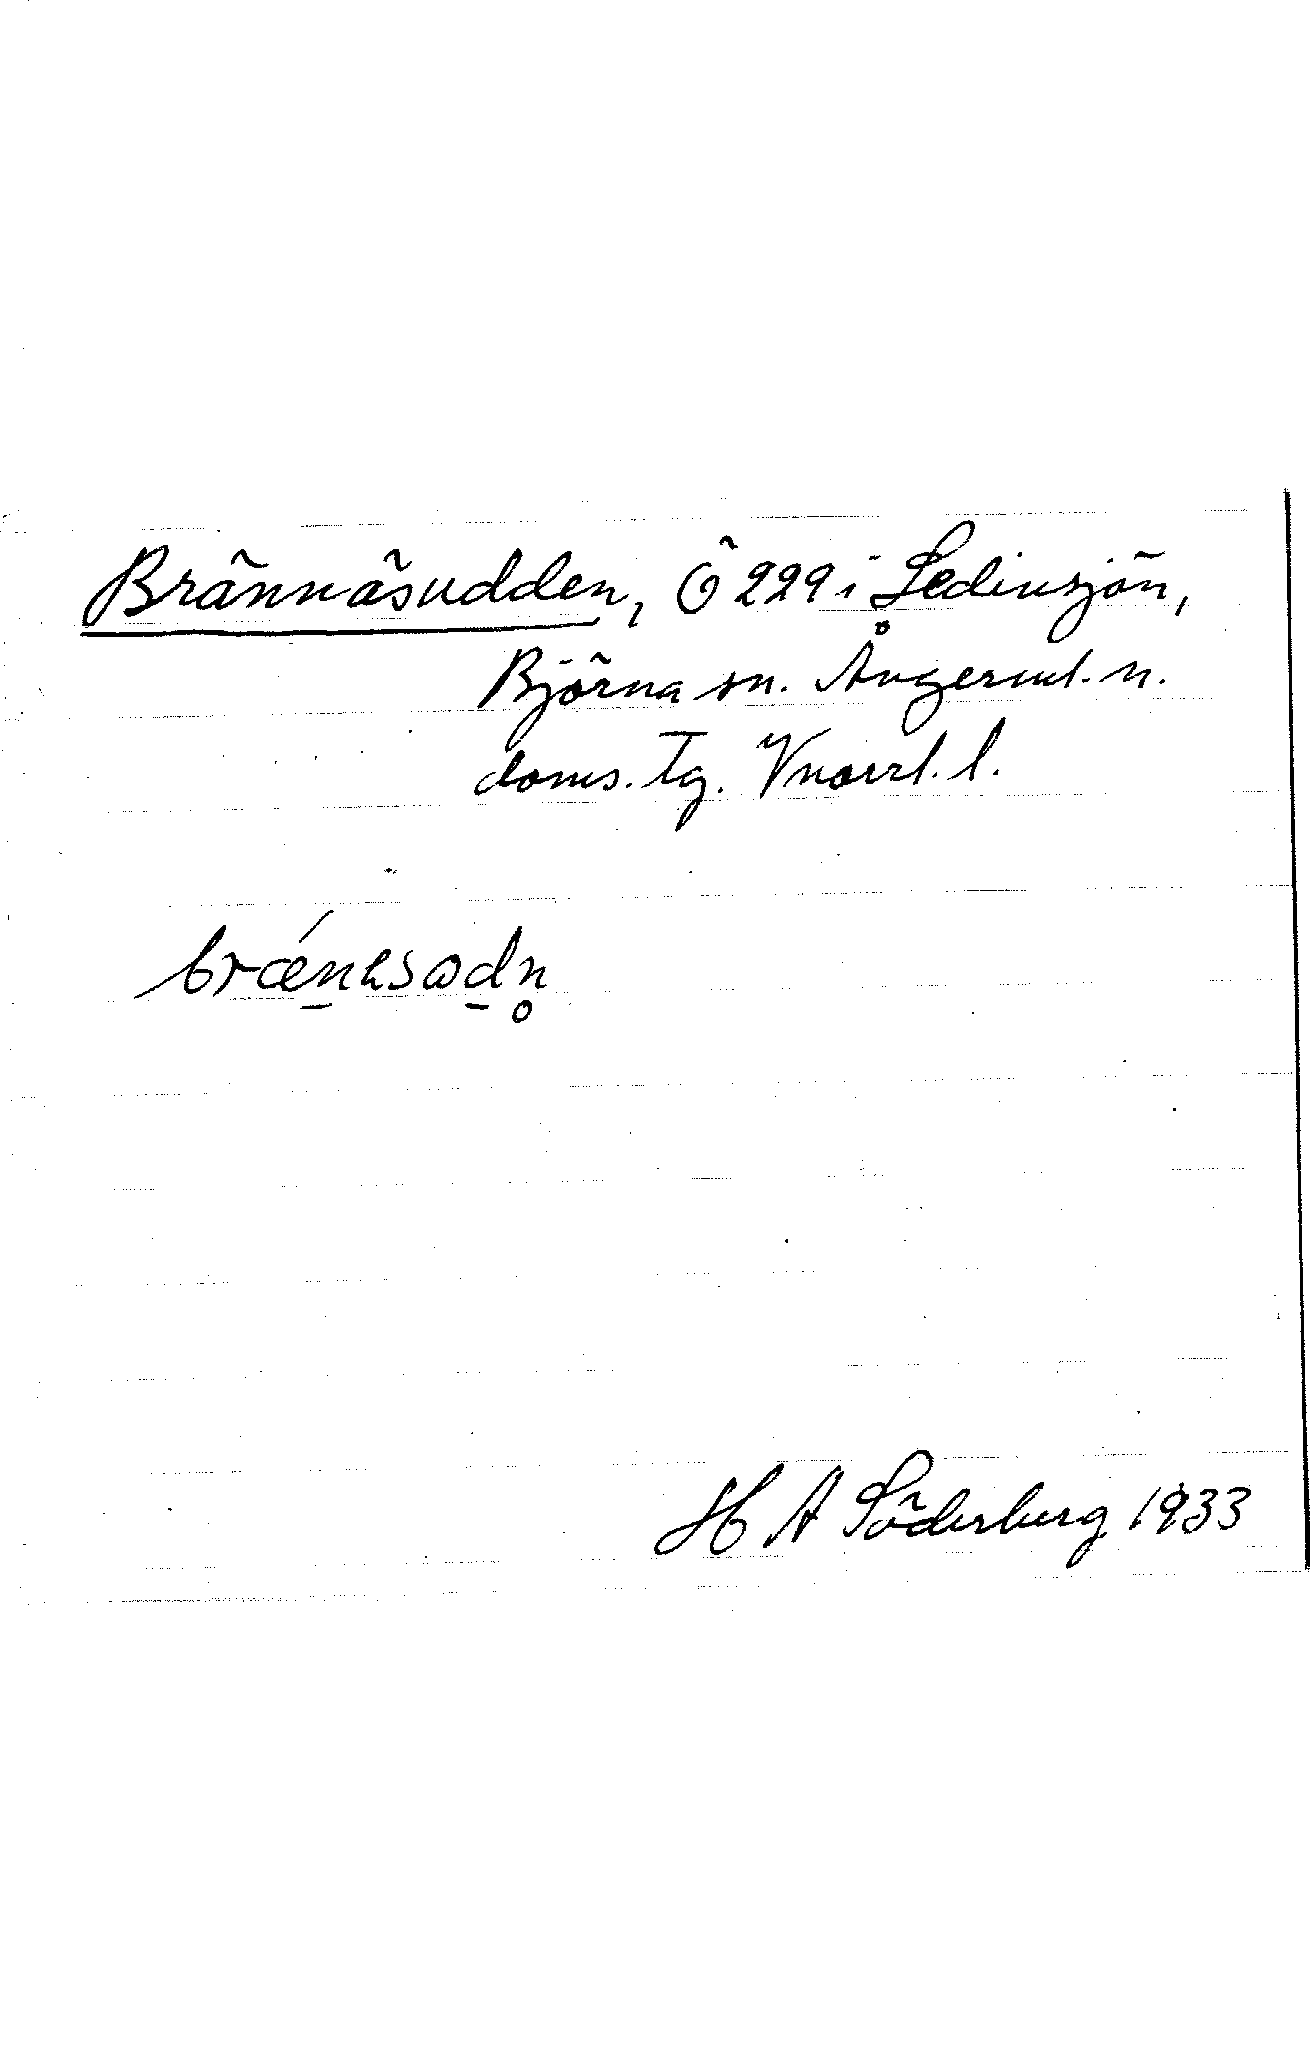 Brännäsudden, Ö 229 i Ledinsjön,
Björna sn. Ångerml. n.
doms. Tg. Vnorrl. l.
brǽn̠ɩsωd̠n̥
H A Söderberg 1933